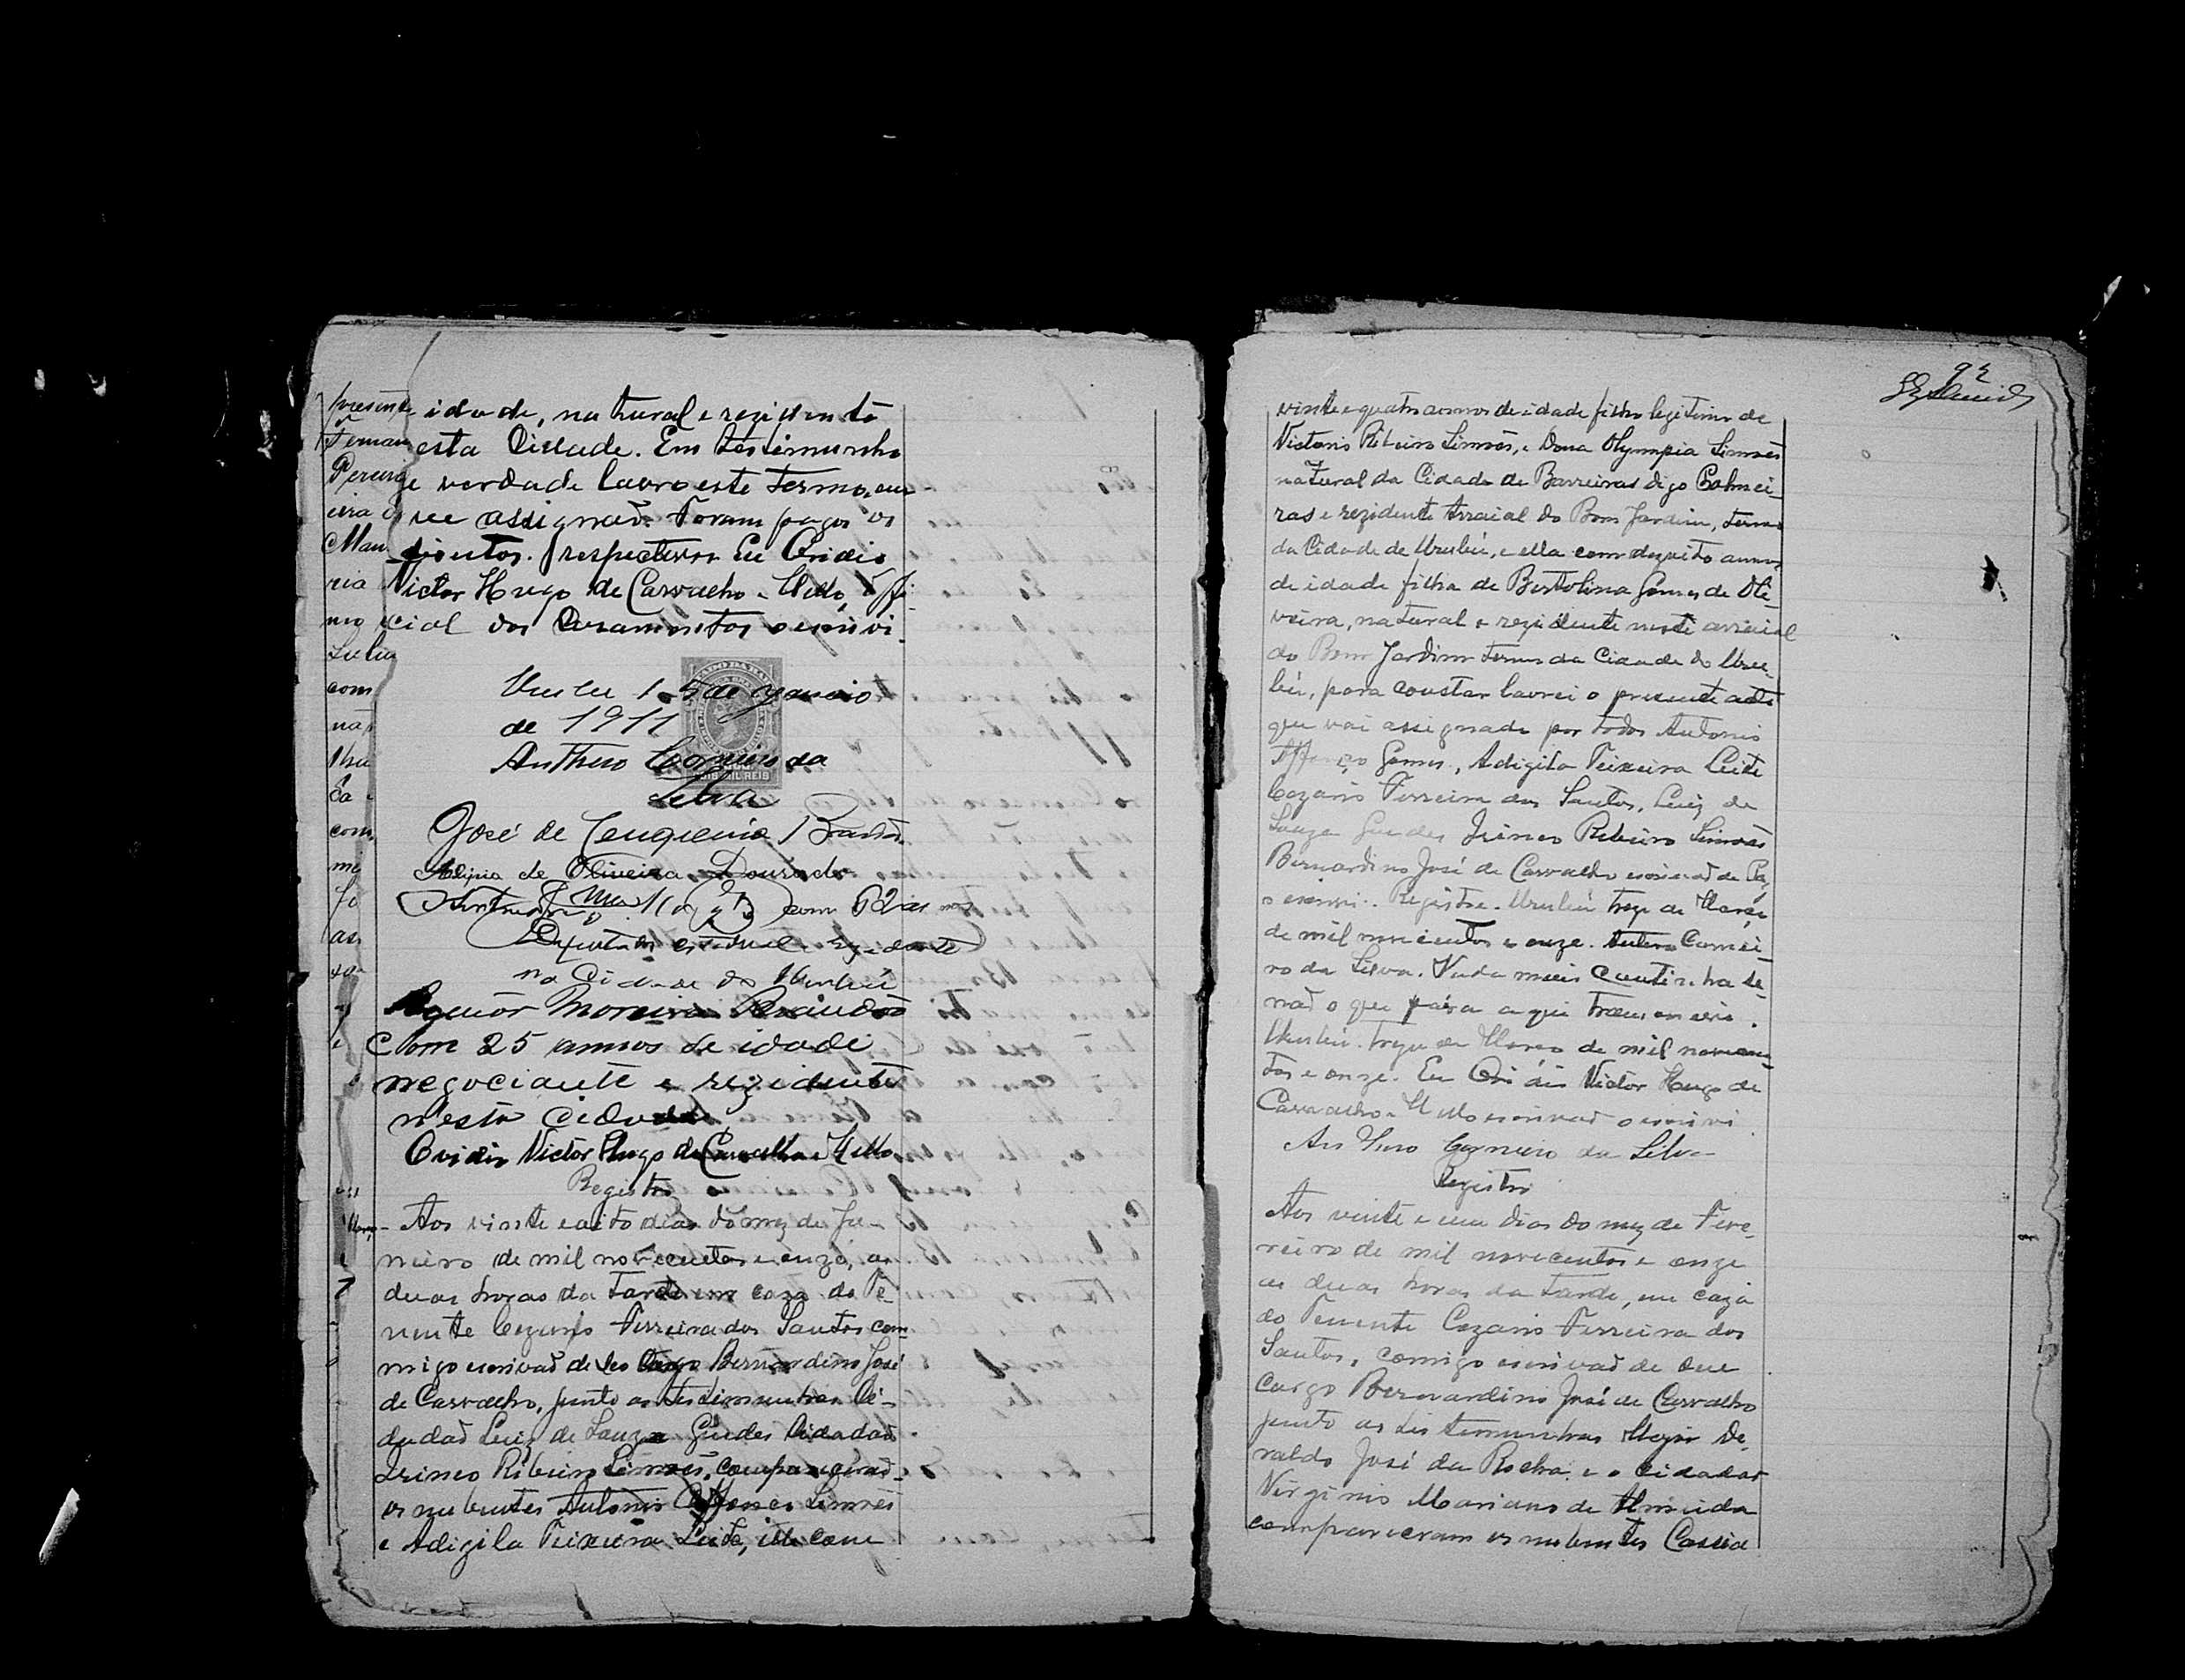 idade, natural e rezidente
esta Cidade. Em testimunho
e verdade lavro este termo, em
assignado. Foram pagos os
respectivos Eu Ovidio
Victor Hugo de Carvalho e Mello, offi-
cial dos Casamentos o escrivi.
Urubu 15 de Janeiro
de 1911
Anthero Carneiro da
Silva
José de Brandão
Alipia de Oliveira Dourado
com 62 annos
Deputado estadual rezidente
na Cidade do Urubú
Agenor Moreira Brandão
Com 25 annos de idade
negociante e rezidente
n'esta Cidade
Ovidio Victor Hugo de Carvalho e Mello
Registro
Aos vinte e oito dias do mez de Ja-
neiro de mil novecentos e onze, as
duas horas da tarde em caza do Te-
nente Cezario Ferreira dos Santos com-
migo escrivaõ de seo Cargo Bernardino José
de Carvalho, junto as testimunhas Ci-
dadaõ Luiz de Souza Guedes Cidadaõ
Irineo Ribeiro Simoẽs, compareceraõ
os nubentes Antonio Affonço Simoẽs
e Adigila Teixeira Leite, elle com
92
vinte e quatro annos de idade filho legitimo de
Victorio Ribeiro Simoẽs, e Dona Olympia Simoẽs
natural da Cidade de Barreiras digo Palmei-
ras e rezidente Arraial do Bom Jardim, termo
da Cidade de Urubú, e ella com dezoito annos
de idade filha de Bertolina Gomes de Oli-
veira, natural e rezidente neste arraial
do Bom Jardim termo da Cidade do Uru-
bú, para constar lavrei o presente acto
que vai assignado por todos Antonio
Affonço Gomes, Adigila Teixeira Leite
Cezario Ferreira dos Santos, Luiz de
Souza Guedes Irineo Ribeiro Simoẽs
Bernardino José de Carvalho escrivaõ de Paz
o escrivi. Registre. Urubú treze de Março
de mil novecentos e onze. Antero Carnei-
ro da Silva. Nada mais continha se-
naõ o que para aqui transcrevi.
Urubú treze de Março de mil novecen-
tos e onze. Eu Ovidio Victor Hugo de
Carvalho e Mello escrivaõ o escrivi
Anthero Carneiro da Silva
Registro
Aos vinte e um dias do mez de Feve-
reiro de mil novecentos e onze
as duas horas da tarde, em caza
do Tenente Cezario Ferreira dos
Santos, comigo escrivaõ de seu
cargo Bernardino José de Carvalho
junto as testemunhas Major De-
raldo José da Rocha, e o Cidadaõ
Virginio Mariano de Almeida
compareceram os nubentes Cassia